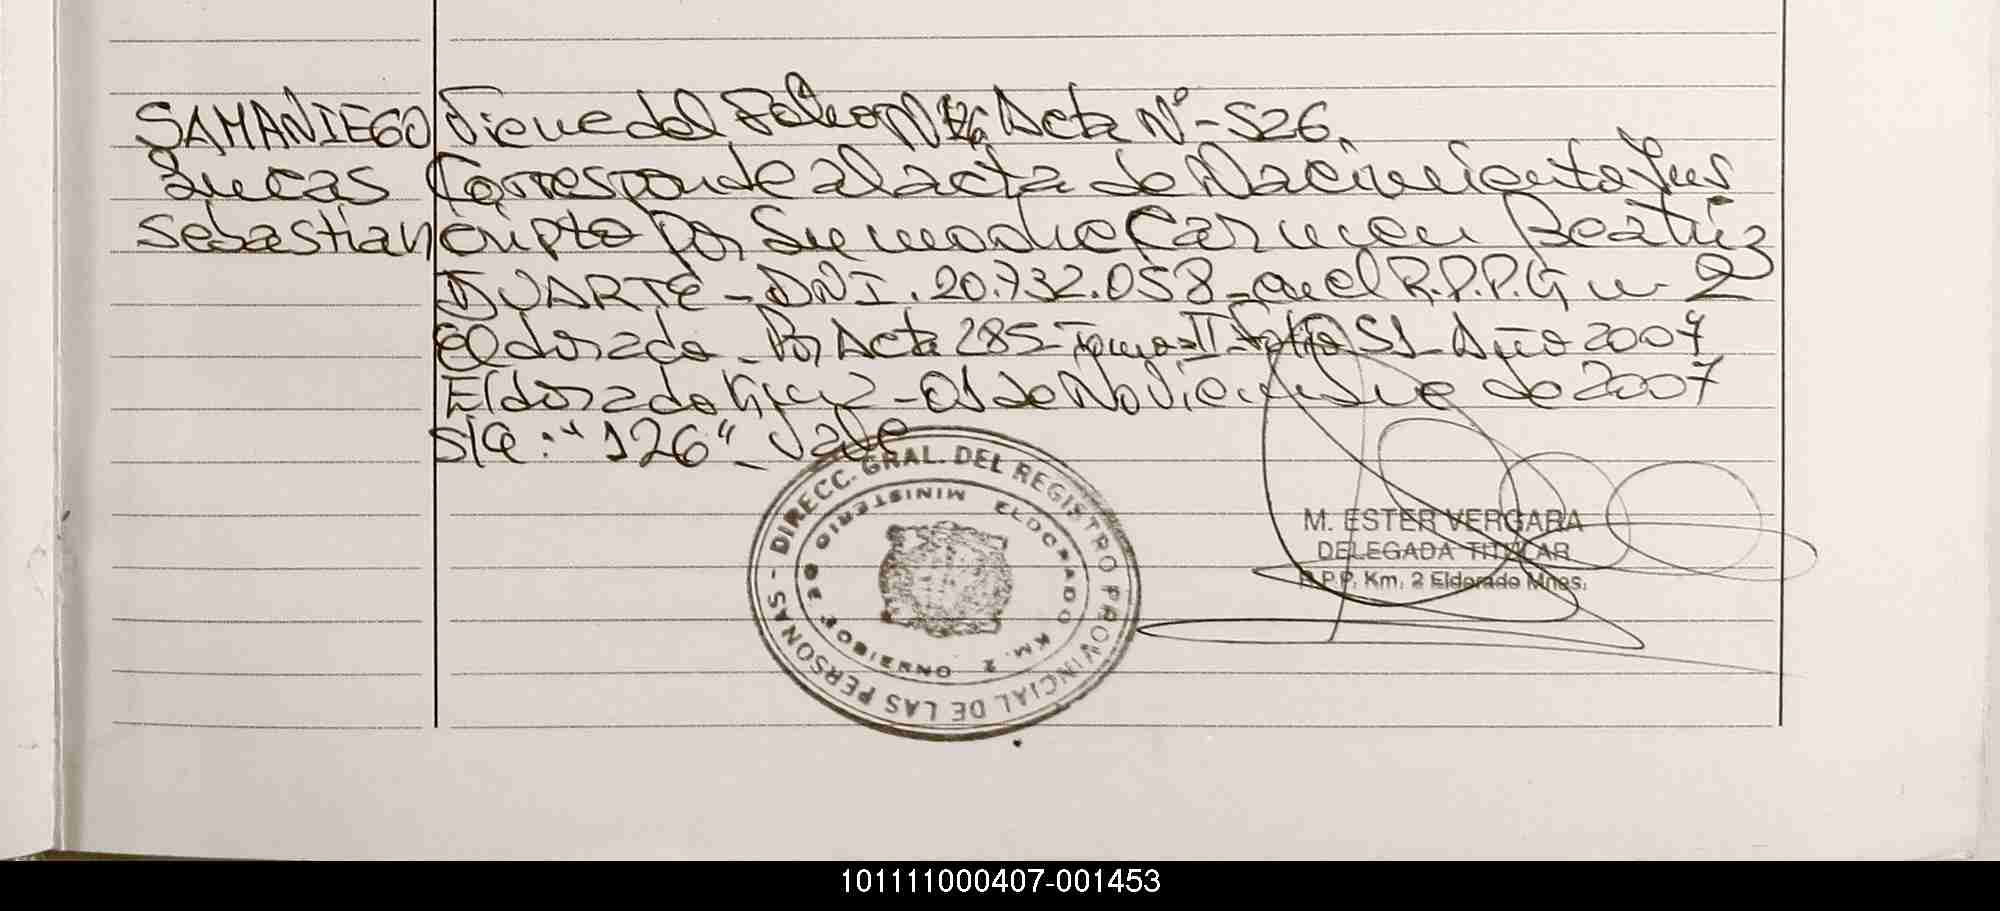 SAMANIEGO
Lucas
Sebastian
Viene del Folio Nº 126 Acta Nº - 526.
Corresponde al acta de Nacimiento Jns
cripto por Su madre Carmen Beatriz
DUARTE - DNI. 20.732.058 - en el R.P.P. Km 2
Eldorado - Por Acta 285 - Tomo II - folio 51 - Año 2007
Eldorado Km 2 - 01 de Noviembre de 2007
S/R: "126" - Vale
DIRECC. GRAL. DEL REGISTRO PROVINCIAL DE LAS PERSONAS -
MINISTERIO DE GOBIERNO
ELDORADO KM. 2
M. ESTER VERGARA
DELEGADA TITULAR
R.P.P. Km. 2 Eldorado Mnes.
101111000407-001453